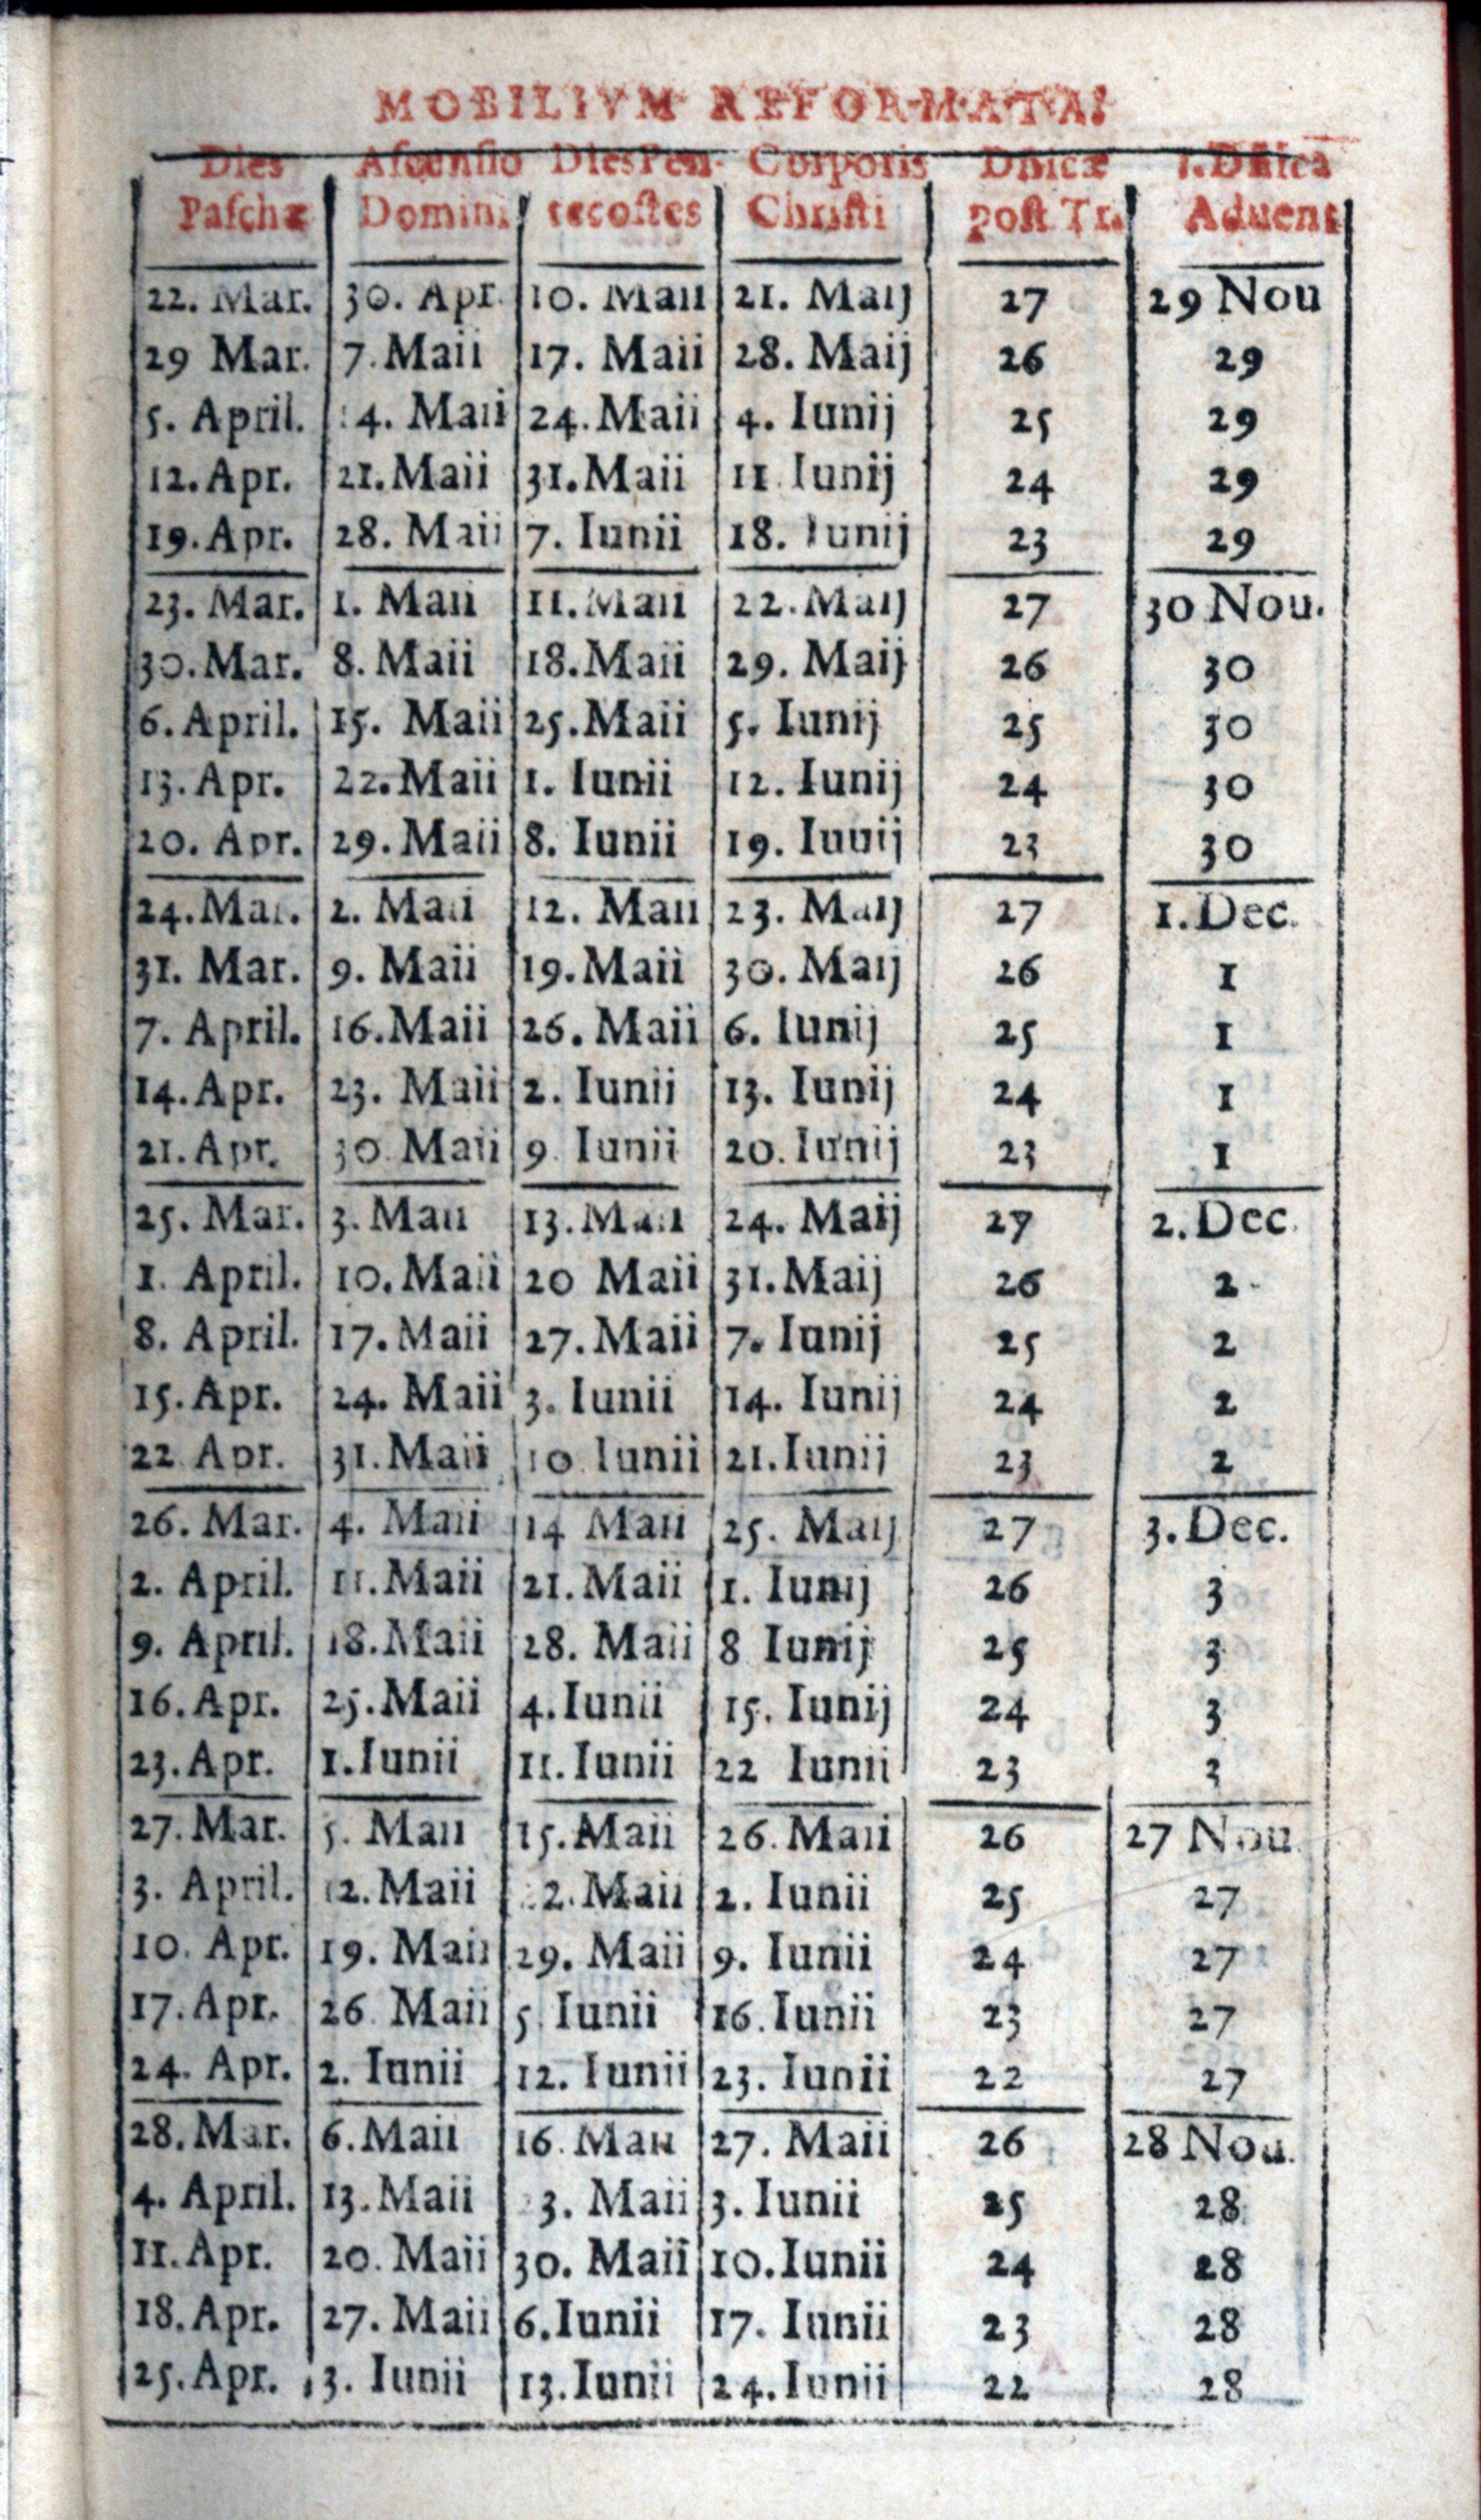 MOBILIVM REFORMATA.
Dies Ascensio Dies Pen- Corporis Dñicæ 1. Dñica
Paschæ Domini tecostes Christi post Tr. Aduent
22. Mar. 30. Apr. 10. Maii 21. Maij 27 29 Nou
29 Mar. 7. Maii 17. Maii 28. Maij 26 29
5. April. 14. Maii 24. Maii 4. Iunij 25 29
12. Apr. 21. Maii 31. Maii 11 Iunij 24 29
19. Apr. 28. Maii 7. Iunii 18. Iunij 23 29
23. Mar. 1. Maii 11. Maii 22. Maij 27 30 Nou.
30. Mar. 8. Maii 18. Maii 29. Maij 26 30
6. April. 15. Maii 25. Maii 5. Iunij 25 30
13. Apr. 22. Maii 1. Iunii 12. Iunij 24 30
20. Apr. 29. Maii 8. Iunii 19. Iunij 23 30
24. Mar. 2. Maii 12. Maii 23. Maij 27 1. Dec.
31. Mar. 9. Maii 19. Maii 30. Maij 26 1
7. April. 16. Maii 26. Maii 6. Iunij 25 1
14. Apr. 23. Maii 2. Iunii 13. Iunij 24 1
21. Apr. 30 Maii 9. Iunii 20. Iunij 23 1
25. Mar. 3. Maii 13. Maii 24. Maij 27 2. Dec.
1. April. 10. Maii 20 Maii 31. Maij 26 2
8. April. 17. Maii 27. Maii 7. Iunij 25 2
15. Apr. 24. Maii 3. Iunii 14. Iunij 24 2
22 Apr. 31. Maii 10 Iunii 21. Iunij 23 2
26. Mar. 4. Maii 14 Maii 25. Maij 27 3. Dec.
2. April. 11. Maii 21. Maii 1. Iunij 26 3
9. April. 18. Maii 28. Maii 8 Iunij 25 3
16. Apr. 25. Maii 4. Iunii 15. Iunij 24 3
23. Apr. 1. Iunii 11. Iunii 22 Iunii 23 3
27. Mar. 5. Maii 15. Maii 26. Maii 26 27 Nou.
3. April. 12. Maii 22. Maii 2. Iunii 25 27
10. Apr. 19. Maii 29. Maii 9. Iunii 24 27
17. Apr. 26. Maii 5. Iunii 16. Iunii 23 27
24. Apr. 2. Iunii 12. Iunii 23. Iunii 22 27
28. Mar. 6. Maii 16. Maii 27. Maii 26 28 Nou.
4. April. 13. Maii 3. Maii 3. Iunii 25 28
11. Apr. 20. Maii 30. Maii 10. Iunii 24 28
18. Apr. 27. Maii 6. Iunii 17. Iunii 23 28
25. Apr. 3. Iunii 13. Iunii 24. Iunii 22 28